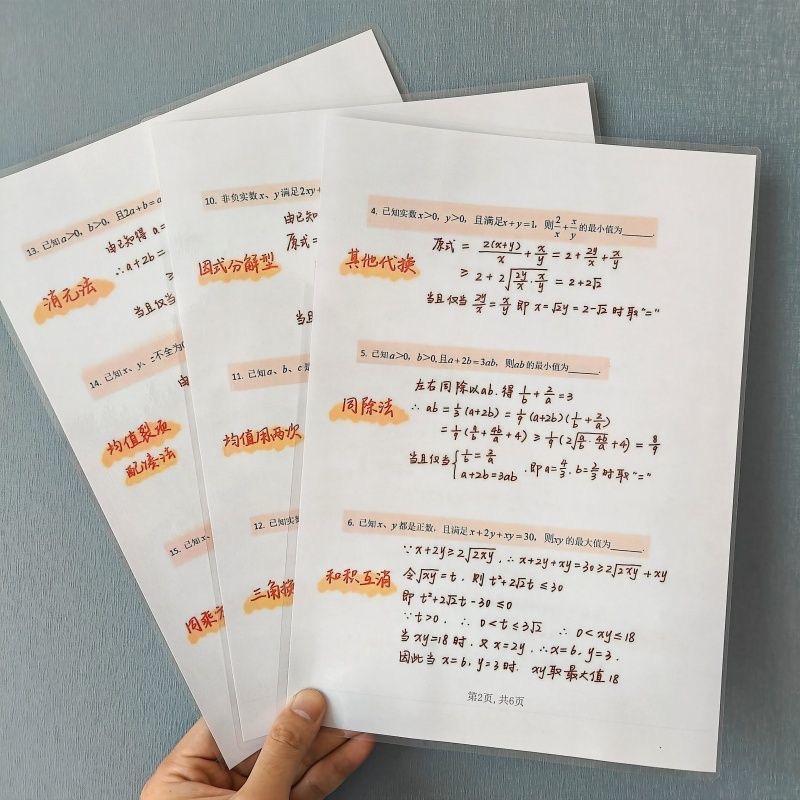 13. 已知a>0, b>0, 且2a+b=a
由已知得 a=
∴a+2b=
≥
消元法
当且仅当
14. 已知x、y、z不全为0
由
均值裂项
配凑法
15. 已知x、
同乘
10. 非负实数x、y满足2xy+
由已知
原式=
因式分解型
当且
11. 已知a、b、c是
均值用两次
12. 已知实数
三角换
4. 已知实数x>0, y>0, 且满足x+y=1, 则2/x+x/y的最小值为______.
原式 = 2(x+y)/x + x/y = 2+2y/x+x/y
其他代换
≥ 2+2√(2y/x·x/y) = 2+2√2
当且仅当 2y/x=x/y 即 x=√2y=2-√2 时取"="
5. 已知a>0, b>0, 且a+2b=3ab, 则ab的最小值为______.
左右同除以ab. 得 1/b+2/a=3
同除法
∴ ab = 1/3(a+2b) = 1/9(a+2b)(1/b+2/a)
= 1/9(a/b+4b/a+4) ≥ 1/9(2√(a/b·4b/a)+4) = 8/9
当且仅当{1/b=2/a
a+2b=3ab .即a=4/3. b=2/3 时取"="
6. 已知x、y都是正数, 且满足x+2y+xy=30, 则xy的最大值为______.
∵x+2y≥2√(2xy), ∴x+2y+xy=30≥2√(2xy)+xy
和积互消
令√(xy)=t. 则 t²+2√2t≤30
即 t²+2√2t-30≤0
∵t>0. ∴0<t≤3√2 ∴0<xy≤18
当 xy=18 时. 又 x=2y. ∴x=6, y=3.
因此当 x=6, y=3时. xy取最大值18
第2页, 共6页